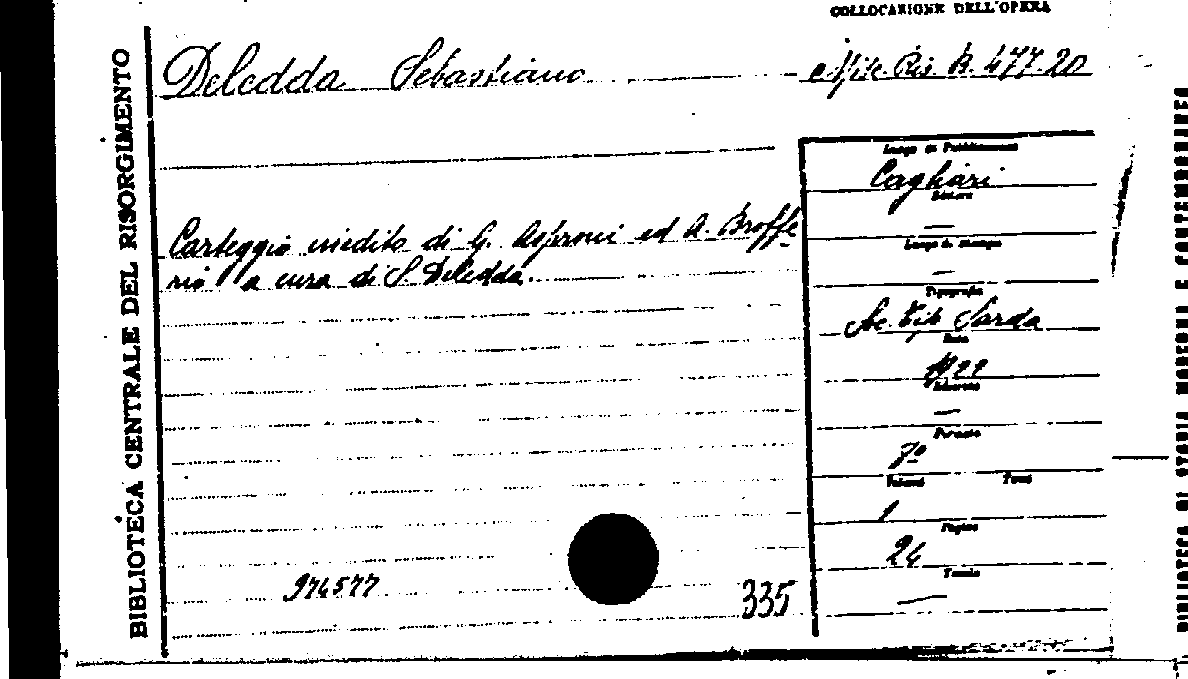 COLLOCAZIONE DELL'OPERA
Deledda Sebastiano
Ris. B. 477.20
BIBLIOTECA CENTRALE DEL RISORGIMENTO
Carteggio inedito di G. Asproni ed A. Broffe
rio a cura di S. Deledda.
974577
335
Luogo di Pubblicazione
Cagliari
Editore
—
Luogo di stampa
—
Tipografia
Soc. Tip. Sarda
Data
1922
Edizione
—
Formato
Volumi Tomi
1
Pagine
24
Tavole
—
BIBLIOTECA DI STORIA MODERNA E CONTEMPORANEA